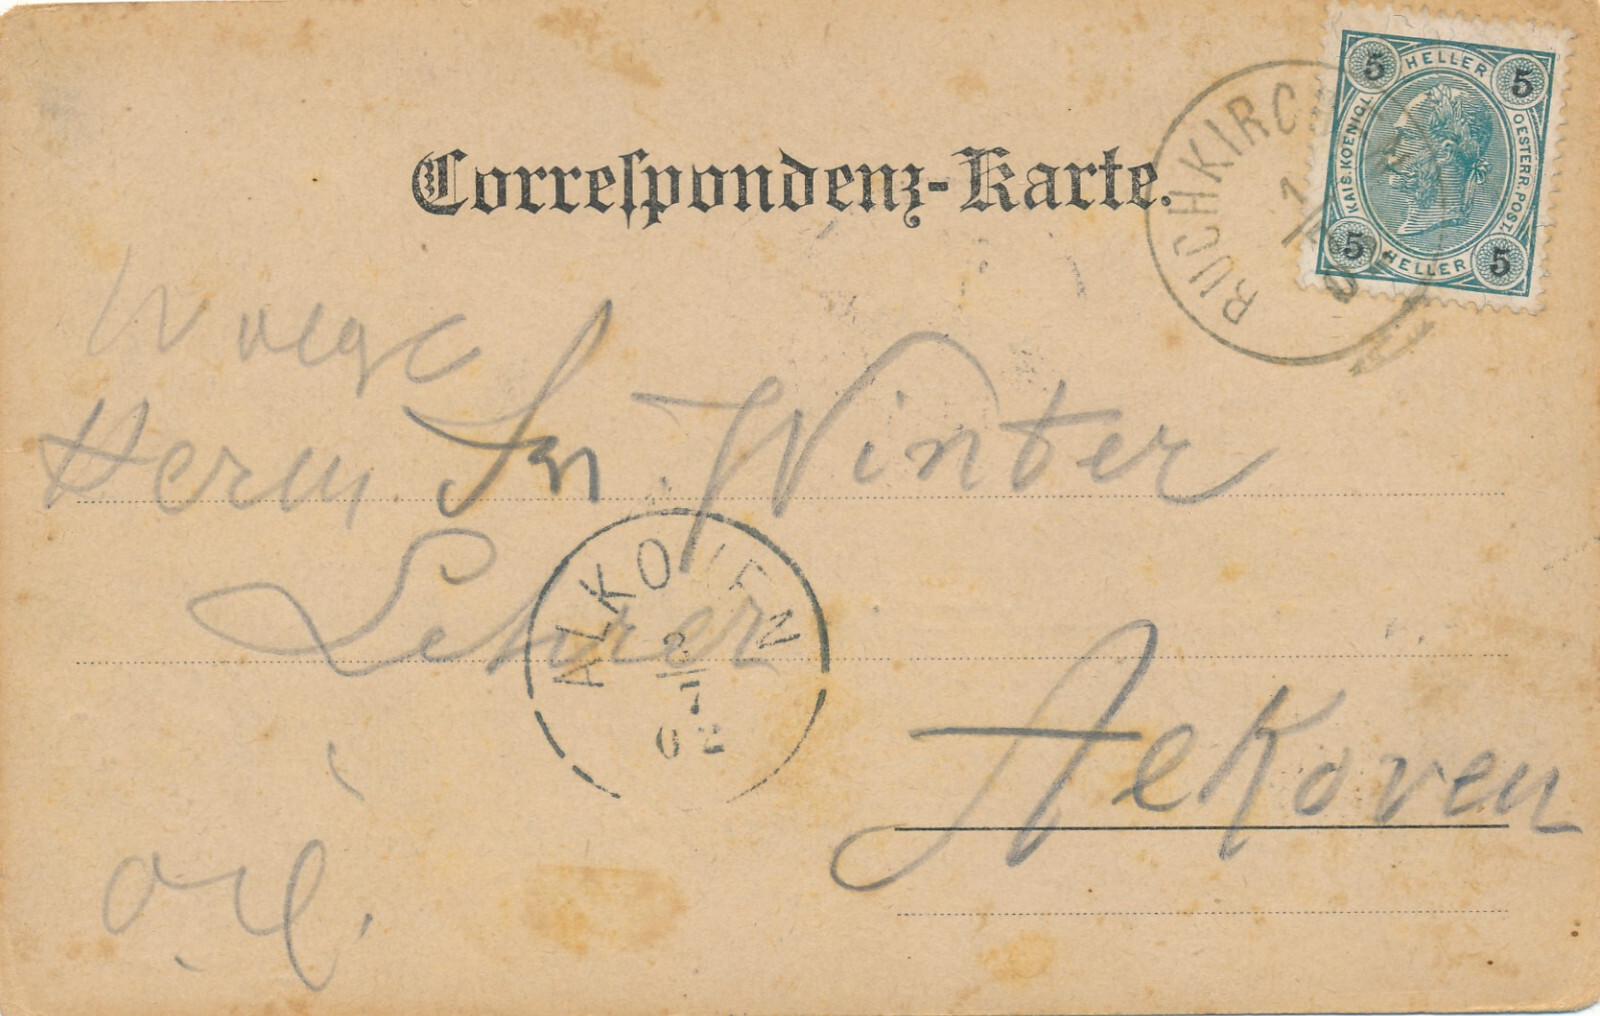 Correspondenz-Karte.
5 HELLER 5
KAIS. KOENIGL. OESTERR. POST.
5 HELLER 5
BUCHKIRCH
Herrn Winter
Lehrer
ALKOVEN
2
7
02
Alkoven